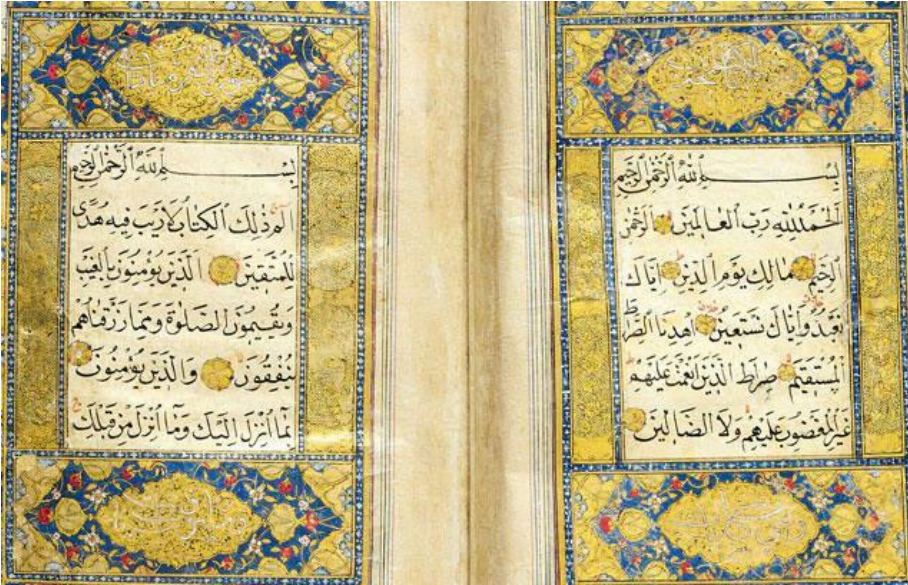 بسم الله الرحمن الرحيم
الحمد لله رب العالمين الرحمن
الرحيم مالك يوم الدين اياك
نعبد واياك نستعين اهدنا الصراط
المستقيم صراط الذين انعمت عليهم
غير المغضوب عليهم ولا الضالين
بسم الله الرحمن الرحيم
الم ذلك الكتاب لا ريب فيه هدى
للمتقين الذين يؤمنون بالغيب
ويقيمون الصلوة ومما رزقناهم
ينفقون والذين يؤمنون
بما انزل اليك وما انزل من قبلك